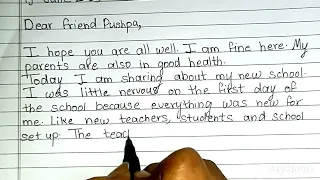 Dear friend Pushpa,
I hope you are all well. I am fine here. My
parents are also in good health.
Today I am sharing about my new school.
I was little nervous on the first day of
the school because everything was new for
me. Like new teachers, students and school
set up. The teac